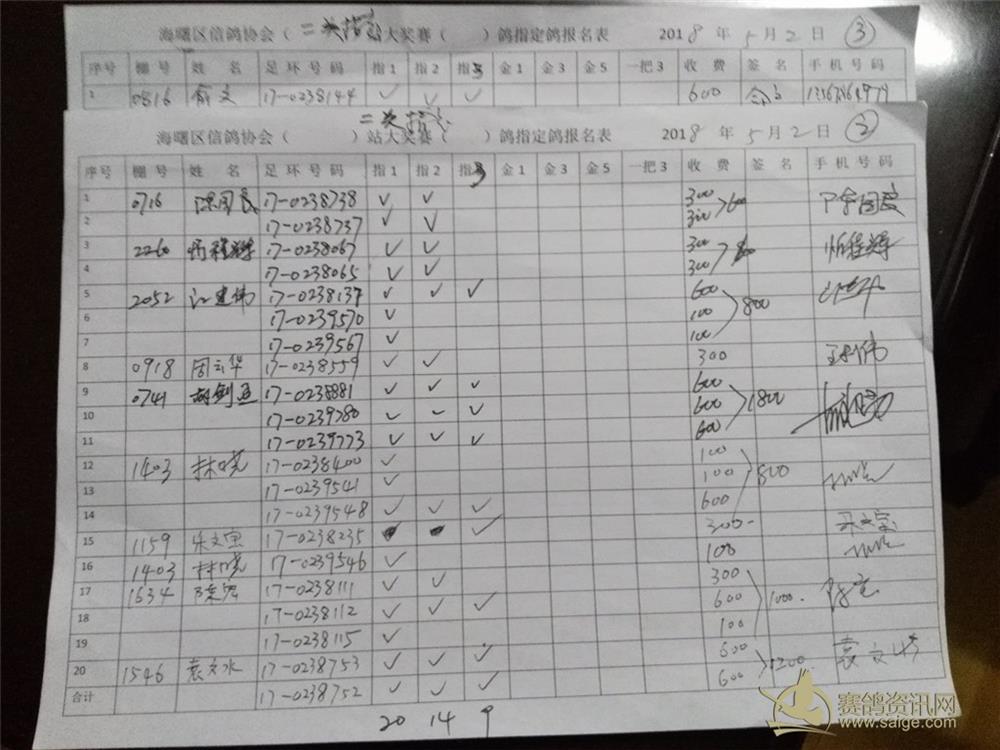 海曙区信鸽协会（二次指定站大奖赛（ ）鸽指定鸽报名表 2018年5月2日 ③
序号 棚号 姓名 足环号码 指1 指2 指3 金1 金3 金5 一把3 收费 签名 手机号码
1 0816 俞文 17-0238144 ✓ ✓ ✓ 600
二次指定
海曙区信鸽协会（ ）站大奖赛（ ）鸽指定鸽报名表 2018年5月2日 ②
序号 棚号 姓名 足环号码 指1 指2 指3 金1 金3 金5 一把3 收费 签名 手机号码
1 0716 陈国良 17-0238738 ✓ ✓ 300 >600 陈国良
2 17-0238737 ✓ ✓ 300
3 2260 17-0238067 ✓ ✓ 300
4 17-0238065 ✓ ✓ 300
5 2052 江建伟 17-0238137 ✓ ✓ ✓ 600
6 17-0239570 ✓ 100 800
7 17-0239567 ✓ 100
8 0918 周云华 17-0238559 ✓ ✓ 300
9 0741 胡剑 17-0238881 ✓ ✓ ✓ 600
10 17-0239780 ✓ ✓ ✓ 600 1800
11 17-0239773 ✓ ✓ ✓ 600
12 1403 林晓 17-0238400 ✓ 100
13 17-0239541 ✓ 100 800
14 17-0239548 ✓ ✓ ✓ 600
15 1159 朱文宝 17-0238235 ✓ 300 朱文宝
16 1403 林晓 17-0239546 ✓ 100
17 1634 陈宏 17-0238111 ✓ ✓ 300 陈宏
18 17-0238112 ✓ ✓ ✓ 600 1000
19 17-0238115 ✓ 100
20 1546 袁文水 17-0238753 ✓ ✓ ✓ 600 1200
合计 17-0238752 ✓ ✓ ✓ 600
20 14 9
赛鸽资讯网
www.saige.com